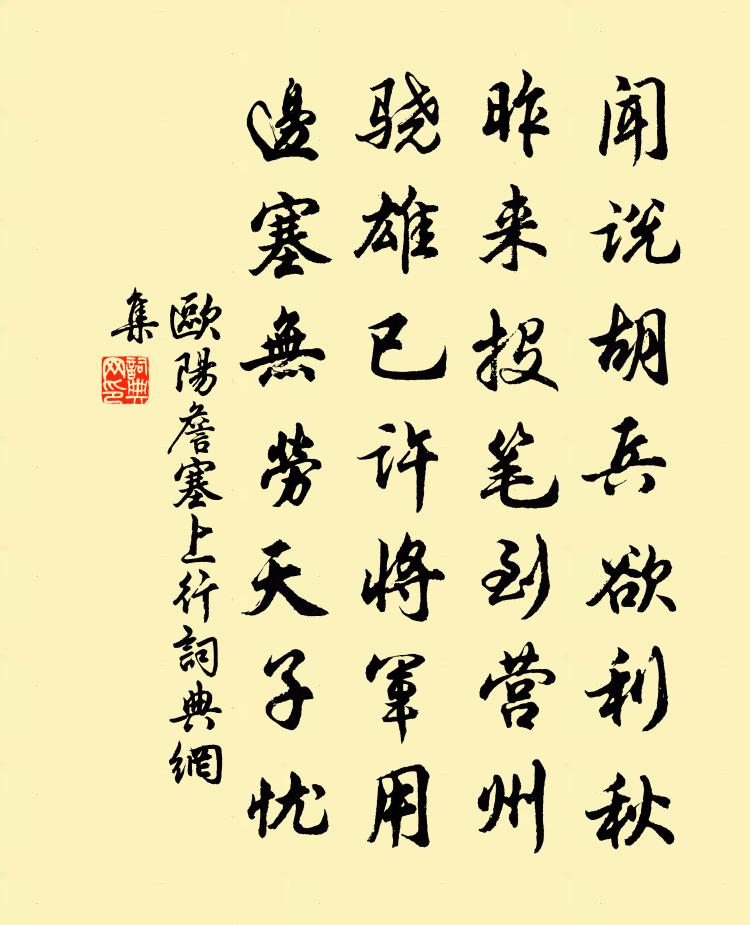 闻说胡兵欲利秋
昨来投笔到营州
骁雄已许将军用
邊塞無勞天子忧
歐陽詹塞上行詞典網
集
詞典
网印